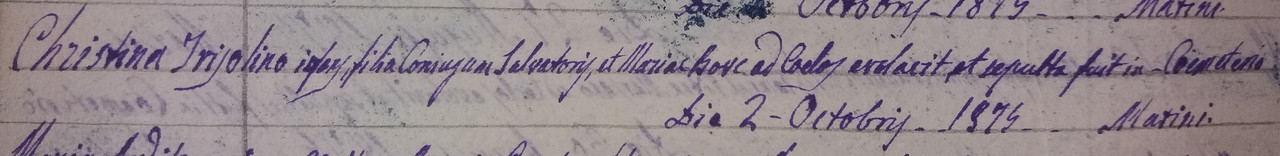 Octobris - 1875 - Marini
Christina Trisolino infans, filia Coniugum Salvatoris, et Mariae Bove ad Coelos evolavit, et sepulta fuit in Coemeterio
Die 2 - Octobris - 1875 - Marini.
Maria